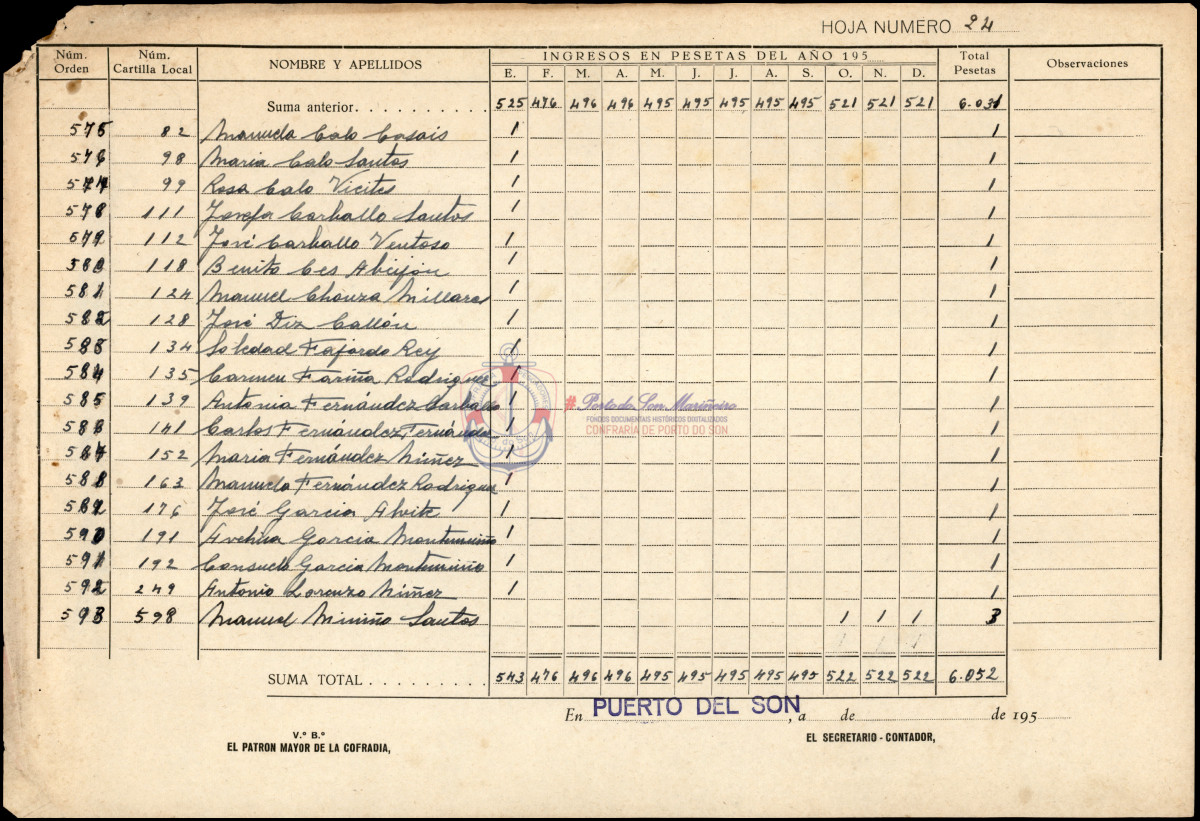 HOJA NUMERO 24
Núm. Orden Núm. Cartilla Local NOMBRE Y APELLIDOS INGRESOS EN PESETAS DEL AÑO 195 Total Pesetas Observaciones
E. F. M. A. M. J. J. A. S. O. N. D.
Suma anterior 525 476 496 496 495 495 495 495 495 521 521 521 6.031
575 82 Manuela Calo Casais 1 1
576 98 Maria Calo Santos 1 1
577 99 Rosa Calo Vicites 1 1
578 111 Josefa Carballo Santos 1 1
579 112 José Carballo Ventoso 1 1
580 118 Benito Ces Abeijón 1 1
581 124 Manuel Chouza Millares 1 1
582 128 José Diz Callón 1 1
583 134 Soledad Fajardo Rey 1 1
584 135 Carmen Fariña Rodriguez 1 1
585 139 Antonia Fernández Carballo 1 1
586 141 Carlos Fernández Fernández 1 1
587 152 Maria Fernandez Núñez 1 1
588 163 Manuela Fernández Rodriguez 1 1
589 176 José Garcia Alvite 1 1
590 191 Garcia 1 1
591 192 Consuelo Garcia 1 1
592 249 Antonio Lorenzo Núñez 1 1
593 598 Manuel Miniño Santos 1 1 1 3
1 1 1
SUMA TOTAL 543 476 496 496 495 495 495 495 495 522 522 522 6.052
#Porto do Son Mariñeiro
FONDOS DOCUMENTAIS HISTÓRICOS DIGITALIZADOS
CONFRARIA DE PORTO DO SON
En PUERTO DEL SON, a de de 195
V.º B.º
EL PATRON MAYOR DE LA COFRADIA,
EL SECRETARIO - CONTADOR,